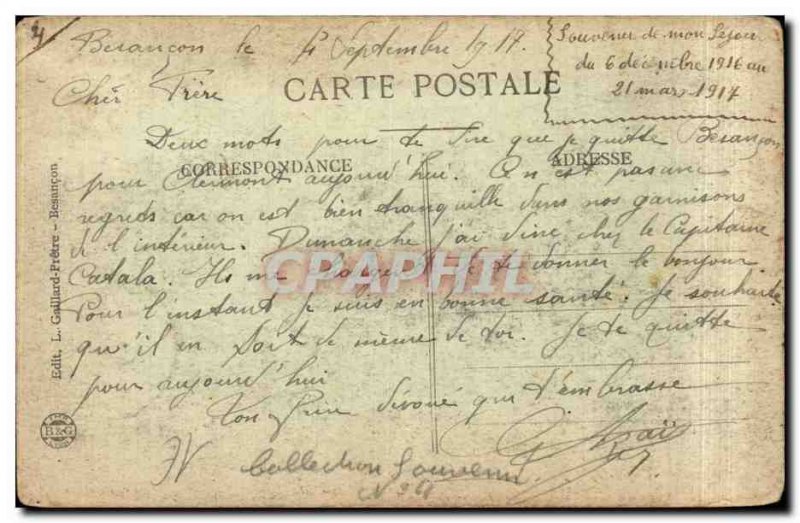 Besançon le 4 Septembre 1917.
Souvenir de mon Séjour
du 6 décembre 1916 au
21 mars 1917
Cher Frère
CARTE POSTALE
Deux mots pour te dire que je quitte Besançon
CORRESPONDANCE
ADRESSE
pour Clermont aujourd'hui. On n'est pas sans
regrets car on est bien tranquille dans nos garnisons
de l'intérieur. Dimanche j'ai diné chez le Capitaine
Catala. Ils me de te donner le bonjour.
CPAPHIL
Pour l'instant je suis en bonne santé. Je souhaite
qu'il en soit de même de toi. Je te quitte
pour aujourd'hui
Ton frère dévoué qui t'embrasse
Collection Souvenir
Edit, L. Gaillard-Prêtre - Besançon
B&G